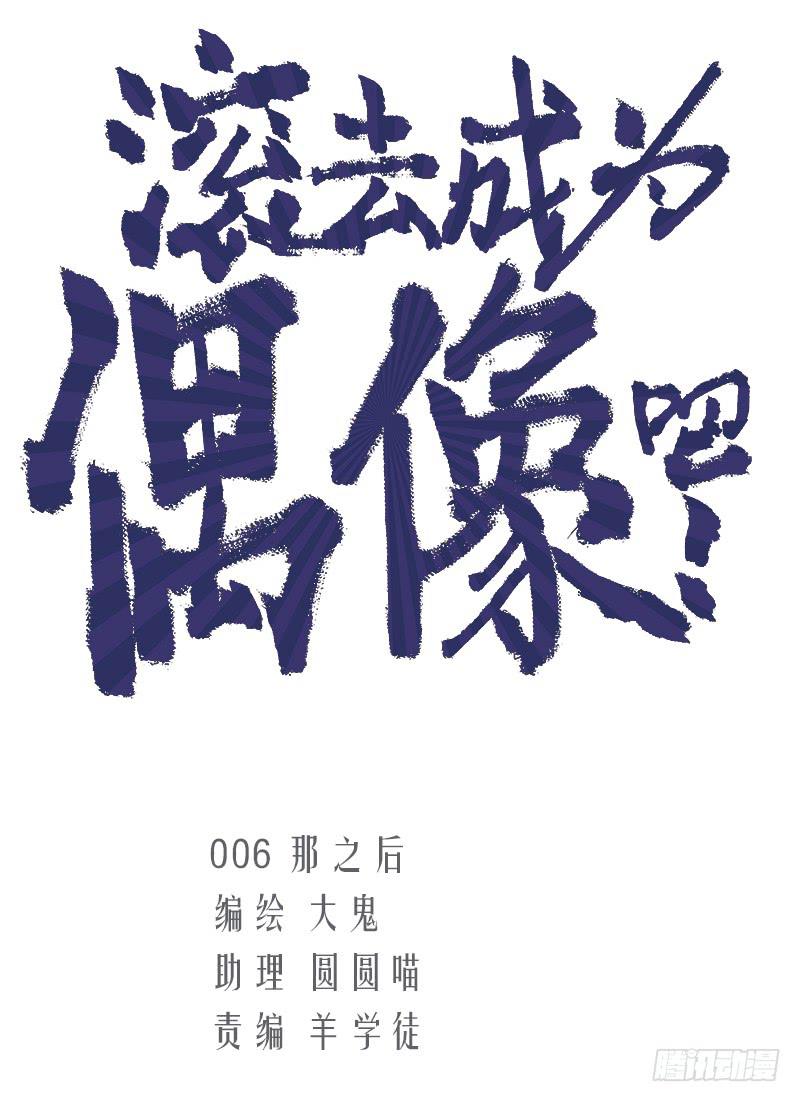 滚去成为
偶像吧!
006 那之后
编绘 大鬼
助理 圆圆喵
责编 羊学徒
腾讯动漫